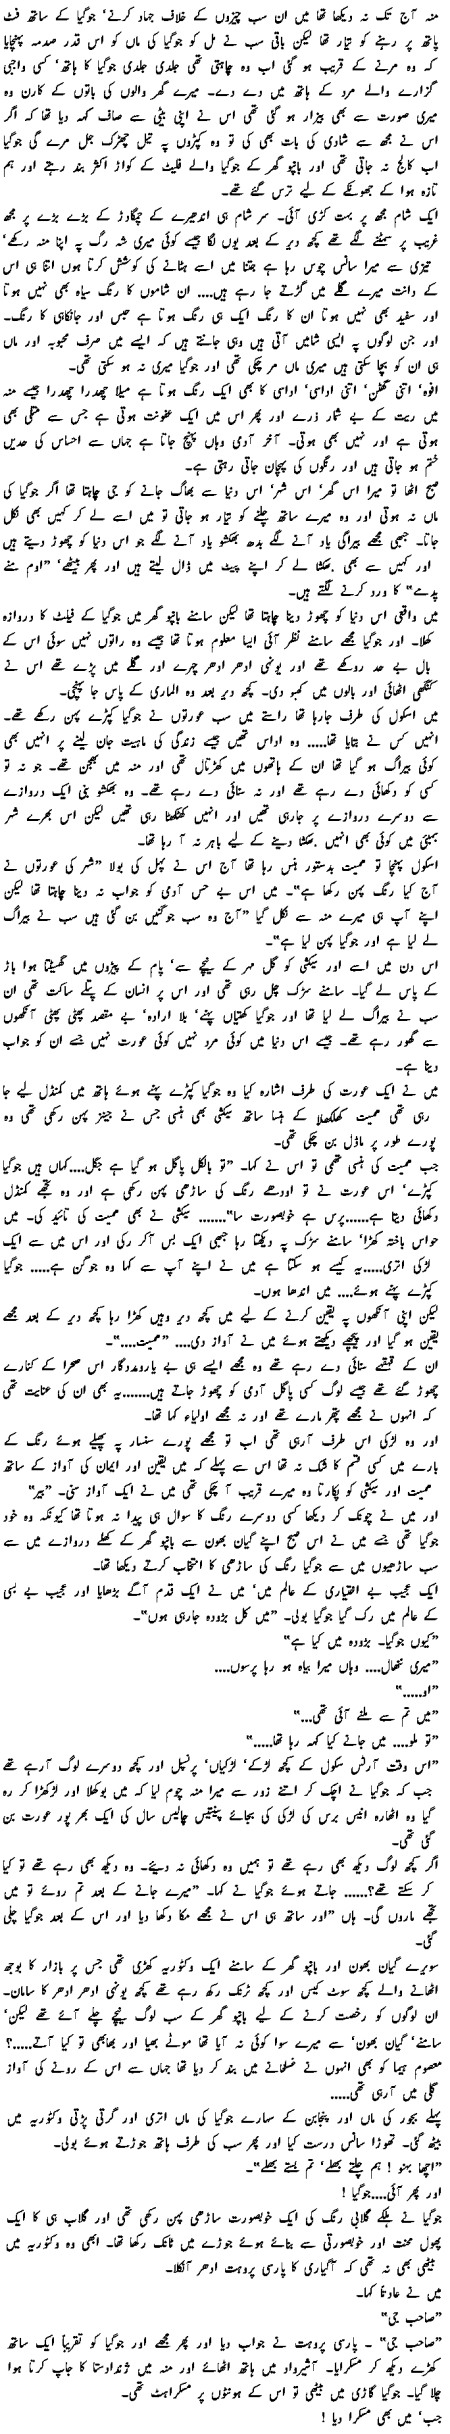 منہ آج تک نہ دیکھا تھا میں ان سب چیزوں کے خلاف جہاد کرنے' جوگیا کے ساتھ فٹ
پاتھ پر رہنے کو تیار تھا لیکن باقی سب نے مل کو جوگیا کی ماں کو اس قدر صدمہ پہنچایا
کہ وہ مرنے کے قریب ہو گئی اب وہ چاہتی تھی جلدی جلدی جوگیا کا ہاتھ' کسی واجبی
گزارے والے مرد کے ہاتھ میں دے دے۔ میرے گھر والوں کی باتوں کے کارن وہ
میری صورت سے بھی بیزار ہو گئی تھی اس نے اپنی بیٹی سے صاف کہہ دیا تھا کہ اگر
اس نے مجھ سے شادی کی بات بھی کی تو وہ کپڑوں پہ تیل چھڑک جل مرے گی جوگیا
اب کالج نہ جاتی تھی اور باپو گھر کے جوگیا والے فلیٹ کے کواڑ اکثر بند رہتے اور ہم
تازہ ہوا کے جھونکے کے لیے ترس گئے تھے۔
ایک شام مجھ پر بہت کڑی آئی۔ سر شام ہی اندھیرے کے چمگادڑ کے بڑے بڑے پر مجھ
غریب پر سمٹنے لگے تھے کچھ دیر کے بعد یوں لگا جیسے کوئی میری شہ رگ پہ اپنا منہ رکھے'
تیزی سے میرا سانس چوس رہا ہے جتنا میں اسے ہٹانے کی کوشش کرتا ہوں اتنا ہی اس
کے دانت میرے گلے میں گڑتے جا رہے ہیں.... ان شاموں کا رنگ سیاہ بھی نہیں ہوتا
اور سفید بھی نہیں ہوتا ان کا رنگ ایک ہی رنگ ہوتا ہے حبس اور جانکاہی کا رنگ۔
اور جن لوگوں پہ ایسی شامیں آتی ہیں وہی جانتے ہیں کہ ایسے میں صرف محبوبہ اور ماں
ہی ان کو بچا سکتی ہیں میری ماں مر چکی تھی اور جوگیا میری نہ ہو سکتی تھی۔
افوہ' اتنی گھٹن' اتنی اداسی' اداسی کا بھی ایک رنگ ہوتا ہے میلا چھدرا چھدرا جیسے منہ
میں ریت کے بے شمار ذرے اور پھر اس میں ایک عفونت ہوتی ہے جس سے متلی بھی
ہوتی ہے اور نہیں بھی ہوتی۔ آخر آدمی وہاں پہنچ جاتا ہے جہاں سے احساس کی حدیں
ختم ہو جاتی ہیں اور رنگوں کی پہچان جاتی رہتی ہے۔
صبح اٹھا تو میرا اس گھر' اس شہر' اس دنیا سے بھاگ جانے کو جی چاہتا تھا اگر جوگیا کی
ماں نہ ہوتی اور وہ میرے ساتھ چلنے کو تیار ہو جاتی تو میں اسے لے کر کہیں بھی نکل
جاتا۔ جبھی مجھے بیراگی یاد آنے لگے بدھ بھکشو یاد آنے لگے جو اس دنیا کو چھوڑ دیتے ہیں
اور کہیں سے بھی بھکشا لے کر اپنے پیٹ میں ڈال لیتے ہیں اور پھر بیٹھے' "اوم منے
پدے" کا ورد کرنے لگتے ہیں۔
میں واقعی اس دنیا کو چھوڑ دینا چاہتا تھا لیکن سامنے باپو گھر میں جوگیا کے فلیٹ کا دروازہ
کھلا۔ اور جوگیا مجھے سامنے نظر آئی ایسا معلوم ہوتا تھا جیسے وہ راتوں نہیں سوئی اس کے
بال بے حد روکھے تھے اور یونہی ادھر ادھر چہرے اور گلے میں پڑے تھے اس نے
کنگھی اٹھائی اور بالوں میں کھبو دی۔ کچھ دیر بعد وہ الماری کے پاس جا پہنچی۔
میں اسکول کی طرف جارہا تھا راستے میں سب عورتوں نے جوگیا کپڑے پہن رکھے تھے۔
انہیں کس نے بتایا تھا..... وہ اداس تھیں جیسے زندگی کی ماہیت جان لینے پر انہیں بھی
کوئی بیراگ ہو گیا تھا ان کے ہاتھوں میں کھڑتال تھی اور منہ میں بھجن تھے۔ جو نہ تو
کسی کو دکھائی دے رہے تھے اور نہ سنائی دے رہے تھے۔ وہ بھکشو بنی ایک دروازے
سے دوسرے دروازے پر جارہی تھیں اور انہیں کھٹکھٹا رہی تھیں لیکن اس بھرے شہر
بمبئی میں کوئی بھی انہیں بھکشا دینے کے لیے باہر نہ آ رہا تھا۔
اسکول پہنچا تو ہمیت بدستور ہنس رہا تھا آج اس نے پہل کی بولا "شہر کی عورتوں نے
آج کیا رنگ پہن رکھا ہے"۔ میں اس بے حس آدمی کو جواب نہ دینا چاہتا تھا لیکن
اپنے آپ ہی میرے منہ سے نکل گیا "آج وہ سب جوگنیں بن گئی ہیں سب نے بیراگ
لے لیا ہے اور جوگیا پہن لیا ہے"۔
اس دن میں اسے اور سیکشی کو گل مہر کے نیچے سے' پام کے پیڑوں میں گھسیٹتا ہوا باڑ
کے پاس لے گیا۔ سامنے سڑک چل رہی تھی اور اس پر انسان کے پتلے ساکت تھی ان
سب نے بیراگ لے لیا تھا اور جوگیا کھنیاں پہنے' بلا ارادہ' بے مقصد پھٹی پھٹی آنکھوں
سے گھور رہے تھے۔ جیسے اس دنیا میں کوئی مرد نہیں کوئی عورت نہیں جسے ان کو جواب
دینا ہے۔
میں نے ایک عورت کی طرف اشارہ کیا وہ جوگیا کپڑے پہنے ہوئے ہاتھ میں کمنڈل لیے جا
رہی تھی ہمیت کھلکھلا کے ہنسا ساتھ سیکشی بھی ہنسی جس نے جینز پہن رکھی تھی وہ
پورے طور پر ماڈل بن چکی تھی۔
جب ہمیت کی ہنسی تھمی تو اس نے کہا۔ "تو بالکل پاگل ہو گیا ہے جگل....کہاں ہیں جوگیا
کپڑے' اس عورت نے تو اودھے رنگ کی ساڑھی پہن رکھی ہے اور وہ تجھے کمنڈل
دکھائی دیتا ہے......پرس ہے خوبصورت سا"....... سیکشی نے بھی ہمیت کی تائید کی۔ میں
حواس باختہ کھڑا' سامنے سڑک پہ دیکھتا رہا جبھی ایک بس آکر رکی اور اس میں سے ایک
لڑکی اتری.....یہ کیسے ہو سکتا ہے میں نے اپنے آپ سے کہا وہ جوگن ہے..... جوگیا
کپڑے پہنے ہوئے.... میں اندھا ہوں۔
لیکن اپنی آنکھوں پہ یقین کرنے کے لیے میں کچھ دیر وہیں کھڑا رہا کچھ دیر کے بعد مجھے
یقین ہو گیا اور پیچھے دیکھتے ہوئے میں نے آواز دی.... "ہمیت...."۔
ان کے قہقہے سنائی دے رہے تھے وہ مجھے ایسے ہی بے یارومددگار اس صحرا کے کنارے
چھوڑ گئے تھے جیسے لوگ کسی پاگل آدمی کو چھوڑ جاتے ہیں.......یہ بھی ان کی عنایت تھی
کہ انہوں نے مجھے پتھر مارے تھے اور نہ مجھے اولیاء کہا تھا۔
اور وہ لڑکی اس طرف آرہی تھی اب تو مجھے پورے سنسار پہ پھیلے ہوئے رنگ کے
بارے میں کسی قسم کا شک نہ تھا اس سے پہلے کہ میں یقین اور ایمان کی آواز کے ساتھ
ہمیت اور سیکشی کو پکارتا وہ میرے قریب آ چکی تھی میں نے ایک آواز سنی۔ "بیر"
اور میں نے چونک کر دیکھا کسی دوسرے رنگ کا سوال ہی پیدا نہ ہوتا تھا کیونکہ وہ خود
جوگیا تھی جسے میں نے اس صبح اپنے گیان بھون سے باپو گھر کے کھلے دروازے میں سے
سب ساڑھیوں میں سے جوگیا رنگ کی ساڑھی کا انتخاب کرتے دیکھا تھا۔
ایک عجیب بے اختیاری کے عالم میں' میں نے ایک قدم آگے بڑھایا اور عجیب بے بسی
کے عالم میں رک گیا جوگیا بولی۔ "میں کل بڑودہ جارہی ہوں"۔
"کیوں جوگیا۔ بڑودہ میں کیا ہے"
"میری ننھال.... وہاں میرا بیاہ ہو رہا پرسوں....
"او....."
"میں تم سے ملنے آئی تھی..."
"تو ملو.... میں جانے کیا کہہ رہا تھا....."
"اس وقت آرٹس سکول کے کچھ لڑکے' لڑکیاں' پرنسپل اور کچھ دوسرے لوگ آرہے تھے
جب کہ جوگیا نے اچک کر اتنے زور سے میرا منہ چوم لیا کہ میں بوکھلا اور لڑکھڑا کر رہ
گیا وہ اٹھارہ انیس برس کی لڑکی کی بجائے پینتیس چالیس سال کی ایک بھر پور عورت بن
گئی تھی۔
اگر کچھ لوگ دیکھ بھی رہے تھے تو ہمیں وہ دکھائی نہ دیئے۔ وہ دیکھ بھی رہے تھے تو کیا
کر سکتے تھے؟...... جاتے ہوئے جوگیا نے کہا۔ "میرے جانے کے بعد تم روئے تو میں
تجھے ماروں گی۔ ہاں "اور ساتھ ہی اس نے مجھے مکا دکھا دیا اور اس کے بعد جوگیا چلی
گئی۔
سویرے گیان بھون اور باپو گھر کے سامنے ایک وکٹوریہ کھڑی تھی جس پر بازار کا بوجھ
اٹھانے والے کچھ سوٹ کیس اور کچھ ٹرنک رکھ رہے تھے کچھ یونہی ادھر ادھر کا سامان۔
ان لوگوں کو رخصت کرنے کے لیے باپو گھر کے سب لوگ نیچے چلے آئے تھے لیکن'
سامنے' گیان بھون' سے میرے سوا کوئی نہ آیا تھا موٹے بھیا اور بھابھی تو کیا آتے.....؟
معصوم ہیما کو بھی انہوں نے غسلخانے میں بند کر دیا تھا جہاں سے اس کے رونے کی آواز
گلی میں آرہی تھی.....
پہلے بجور کی ماں اور پنجابن کے سہارے جوگیا کی ماں اتری اور گرتی پڑتی وکٹوریہ میں
بیٹھ گئی۔ تھوڑا سانس درست کیا اور پھر سب کی طرف ہاتھ جوڑتے ہوئے بولی۔
"اچھا بہنو ! ہم چلتے بھلے' تم بستے بھلے"۔
اور پھر آئی....جوگیا !
جوگیا نے ہلکے گلابی رنگ کی ایک خوبصورت ساڑھی پہن رکھی تھی اور گلاب ہی کا ایک
پھول محنت اور خوبصورتی سے بنائے ہوئے جوڑے میں ٹانک رکھا تھا۔ ابھی وہ وکٹوریہ میں
بیٹھی بھی نہ تھی کہ آگیاری کا پارسی پروہت ادھر آنکلا۔
میں نے عادتاً کہا۔
"صاحب جی"
"صاحب جی" ۔ پارسی پروہت نے جواب دیا اور پھر مجھے اور جوگیا کو تقریباً ایک ساتھ
کھڑے دیکھ کر مسکرایا۔ آشیرواد میں ہاتھ اٹھائے اور منہ میں ژنداوستا کا جاپ کرتا ہوا
چلا گیا۔ جوگیا گاڑی میں بیٹھی تو اس کے ہونٹوں پر مسکراہٹ تھی۔
جب' میں بھی مسکرا دیا !